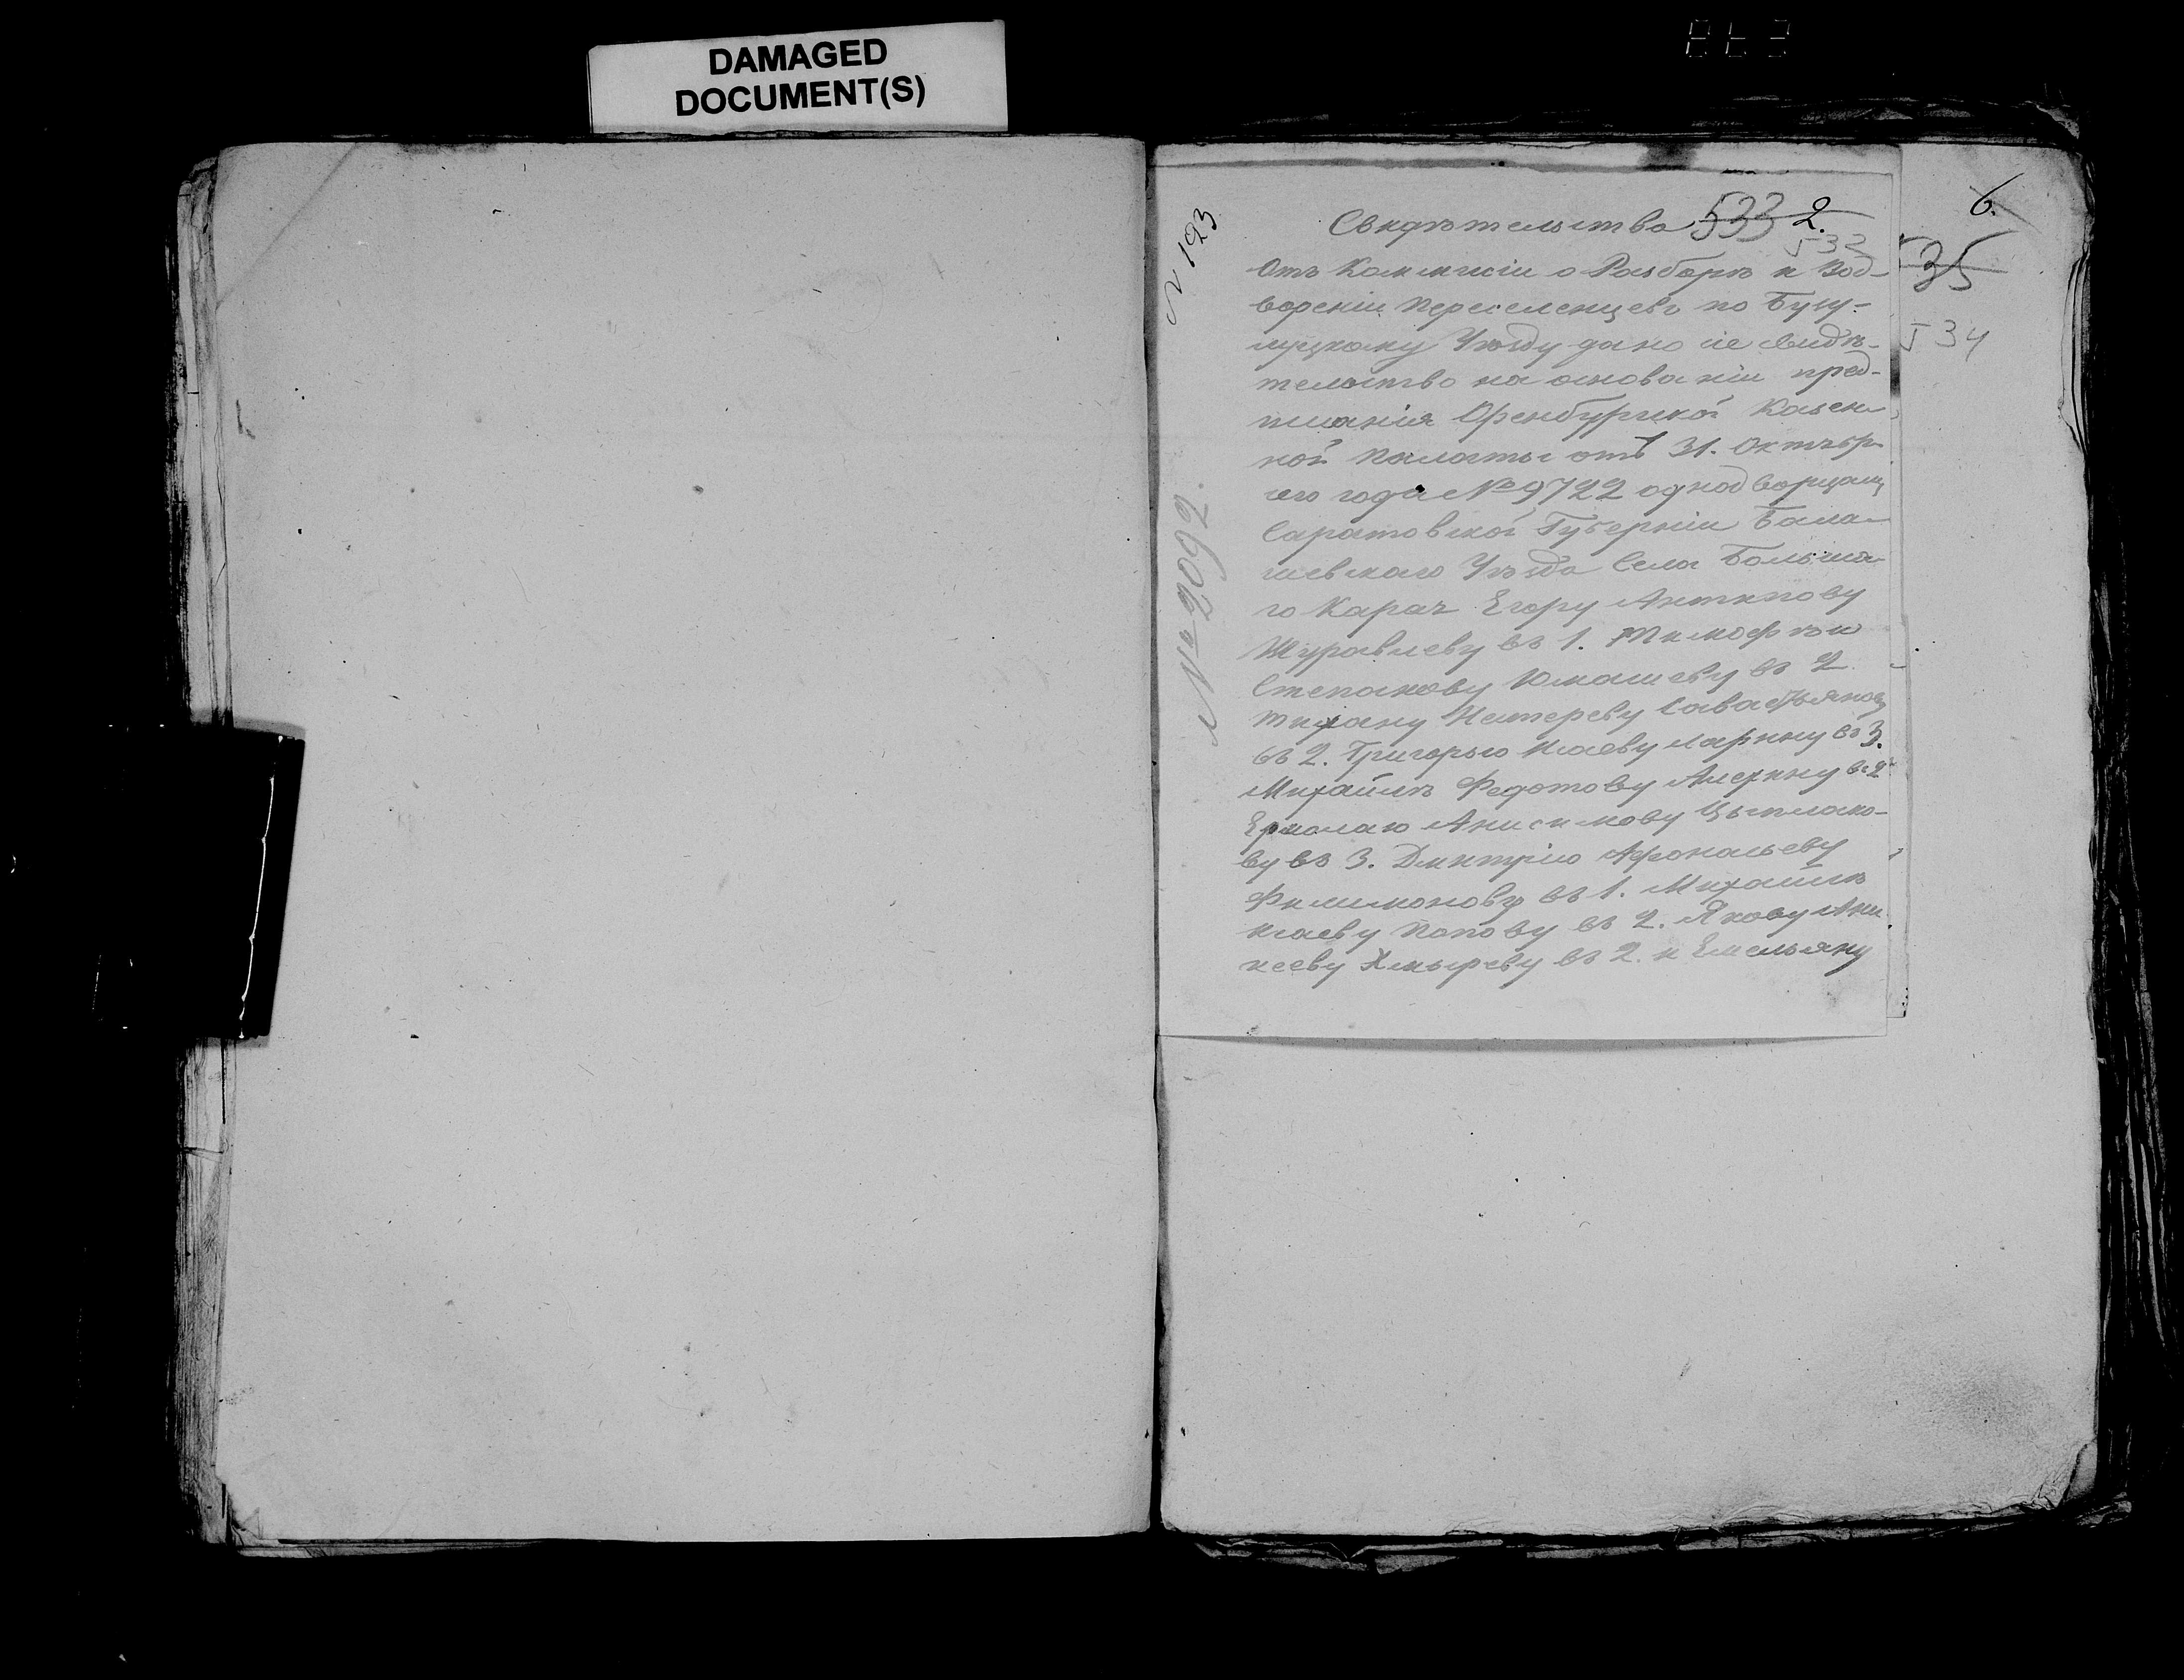 DAMAGED
DOCUMENT(S)
6.
N 123
Свидѣтельство 533 2.
532
35
534
Отъ Коммисіи о Разборѣ и Вод-
вореніи переселенцевъ по Бузу-
луцкому Уѣзду дано сіе свидѣ-
тельство на основаніи пред-
писанія Оренбургской Казен-
ной Палаты отъ 31. Октябр
сего года № 9722 однодворцамъ
Саратовской Губерніи Бала-
шевскаго Уѣзда Села Больша-
го Карач Егору Антипову
Журавлеву въ 1. Тимофѣю
Степанову Юмашеву въ 2
въ 2. Григорью Исаеву Ларину въ 3.
Михайлѣ Федотову Алехину въ 2
Ермолаю Анисимову Цыплако-
ву въ 3. Дмитрію Афонасьеву
Филимонову въ 1. Михайлѣ
Исаеву Попову въ 2. Якову Ани
кееву Хмыреву въ 2. и Емельяну
№ 2092.